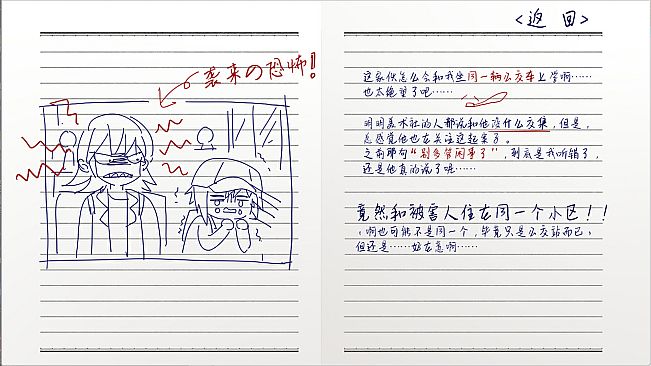 <返回>
袭来の恐怖!
这家伙怎么会和我坐同一辆公交车上学啊……
也太绝望了吧……
明明美术社的人都说和他没什么交集,但是,
总感觉他也在关注这起案子。
之前那句“别多管闲事了”,到底是我听错了,
还是他真的说了呢……
竟然和被害人住在同一个小区!!
(啊也可能不是同一个,毕竟只是公交站而已,
但还是……好在意啊……